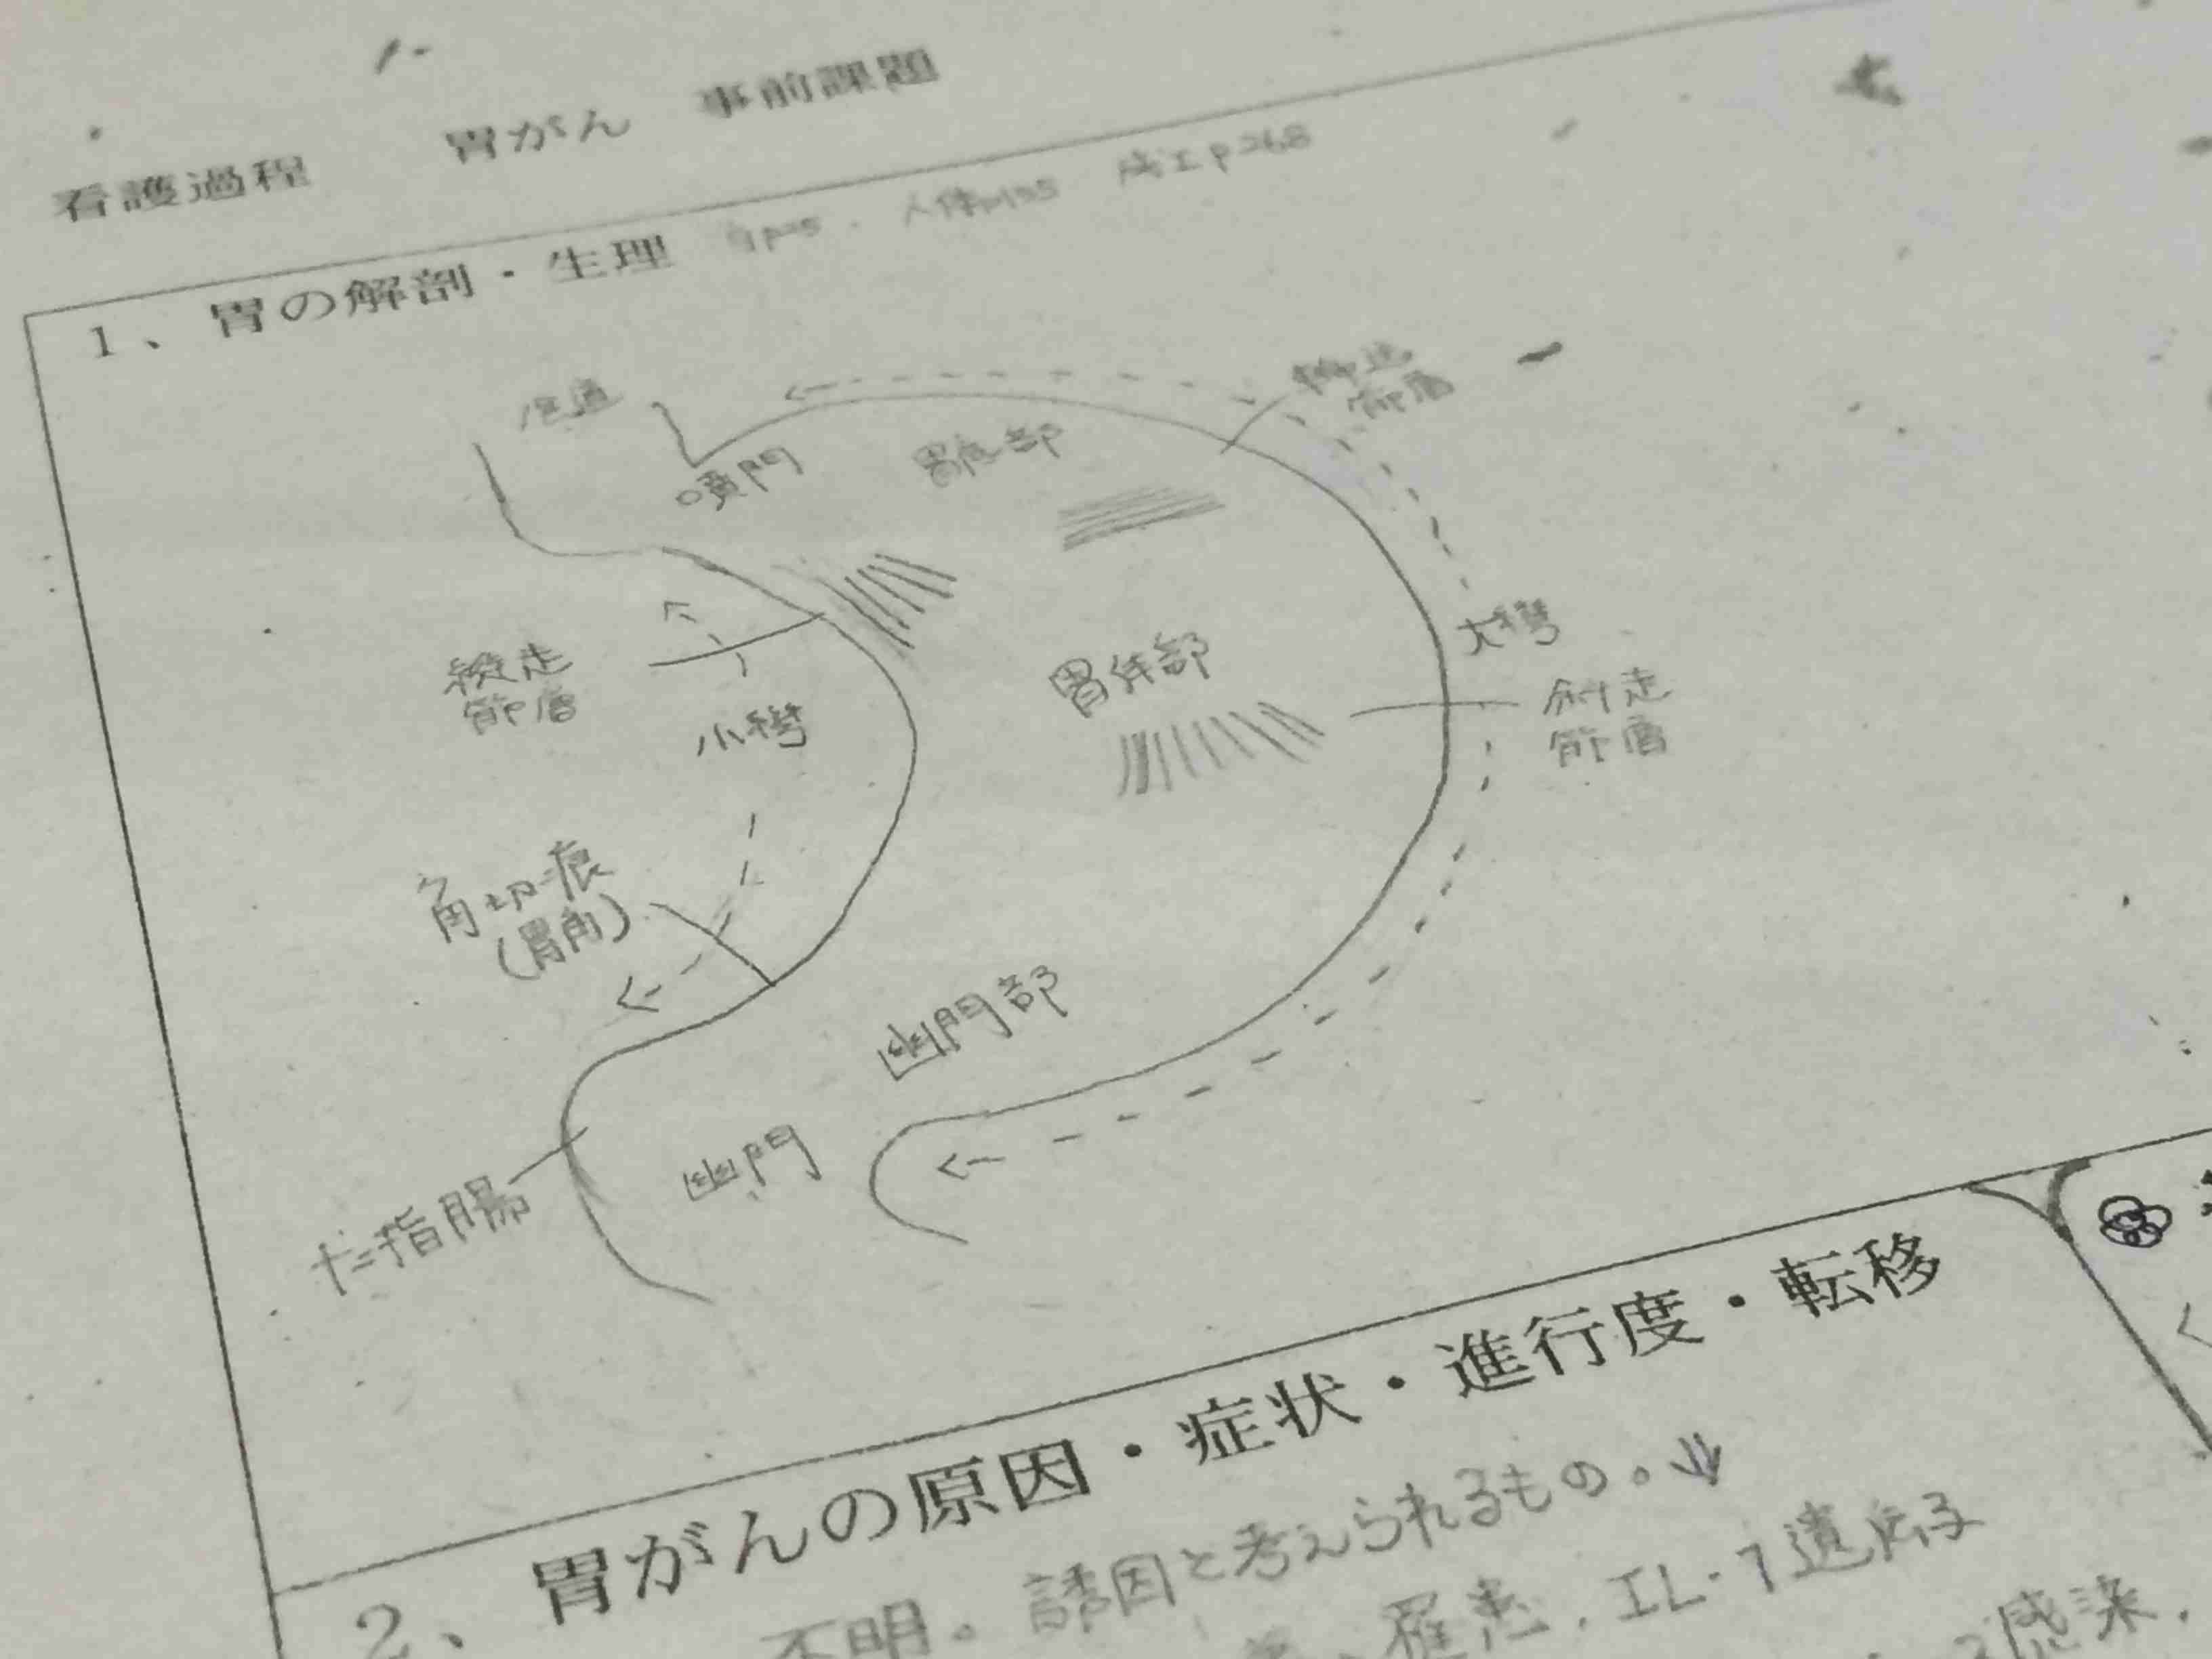 看護過程　胃がん　事前課題
1、胃の解剖・生理
人体 p268
食道
噴門
胃底部
筋層
縦走
筋層
小彎
大彎
胃体部
斜走
筋層
角切痕
(胃角)
幽門部
幽門
十二指腸
2、胃がんの原因・症状・進行度・転移
不明。誘因と考えられるもの。⇓
罹患、IL-1遺伝子
感染、